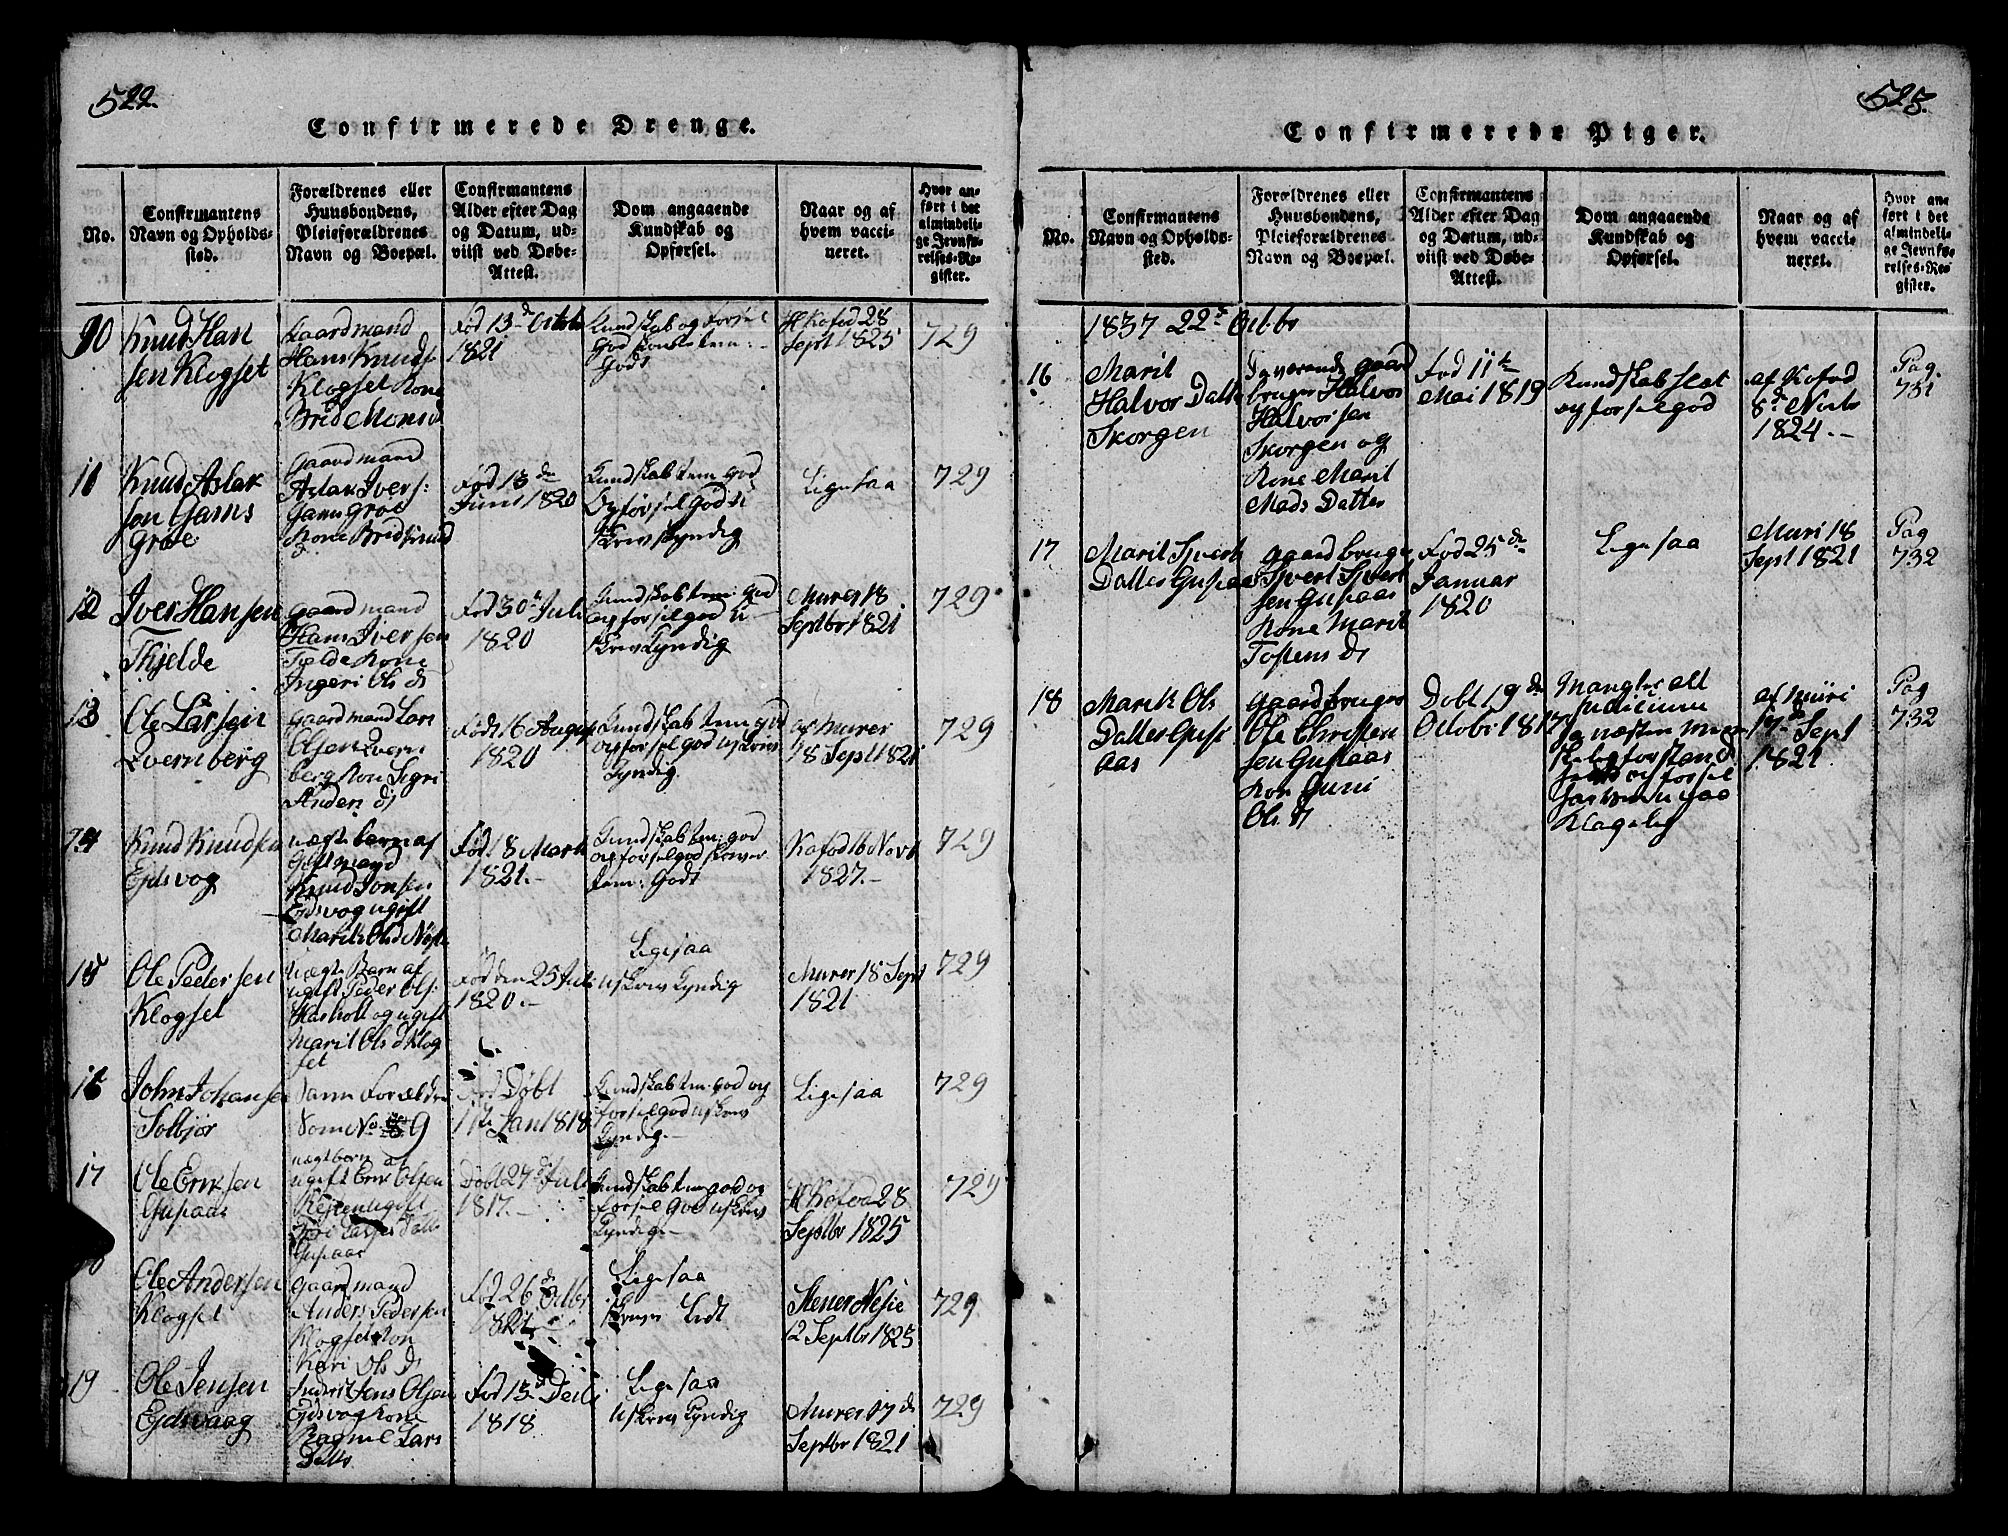 522.
Confirmerede Drenge.
No.
Confirmantens
Navn og Opholds-
sted.
Forældrenes eller
Huusbondens,
Pleieforældrenes
Navn og Boepæl.
Confirmantens
Alder efter Dag
og Datum, ud-
viist ved Døbe-
Attest.
Dom angaaende
Kundskab og
Opførsel.
Naar og af
hvem vacci-
neret.
Hvor an-
ført i det
almindeli-
ge Jevnfø-
relses-Re-
gister.
10
Knud Han
sen Klogset
Gaardmand
Hans Knuds
Klogset Kone
Brid Mons d
Fød 13de Octobr
1821
Kundskab og Forsel
God skriver tem:
Godt
H Kofod 28
Sept 1825
729
11
Knud Aslak
sen Gams
Groe
Gaardmand
Aslak Ivers:
Gams Groe
Kone Brid
Fød 13de
Juni 1820
Kundskab tem god
Opførsel god U
skrivkyndig
Ligesaa
729
12
Iver Hansen
Thjelde
Gaardmand
Hans Iversen
Tjelde Kone
Ingeri Ols d
Fød 30te Juli
1820
Kundskab tem: god
opførsel god U
skrivkyndig
Murer 18
Septbr 1821
729
13
Ole Larsen
Qvernberg
Gaardmand Lars
Olsen Qvern
berg Kon Sigri
Anders d
Født 16 August
1820
Kundskab tem god
opførsel god uskriv
kyndig
af Murer
18 Sept 1821
729
14
Knud Knudsen
Ejdsvog
uægte barn af
Giftmand
Knud Jonsen
Ejdsvog ugift
Marit Olsd
Fød 18 Marti
1821.-
Kundskab tem: god
opførsel god skriver
tem: Godt
Kofod 16 Novb
1827.-
729
15
Ole Pedersen
Klogset
Uægte Barn af
ugift Peder Ols:
og ugift
Marit Ols d Klog
set
Fød den 25 Juli
1820.-
Ligesaa
uskrivkyndig
Murer 18 Sept
1821
729
16
John Johansen
Solbjør
Samme Forældre
Som No 9
Døbt
11te Jan 1818
Kundskab tem: god og
forsel god uskriv
kyndig.-
Ligesaa
729
17
Ole Eriksen
Gusiaas
uægte barn af
ugift Erik Olsen
ugift
Lars Datt
Gusiaas
Døbt 27d Juli
1817.-
Kundskab tem god op
forsel God uskriv
kyndig.-
H Kofod 28
Septbr 1825
729
Ole Andersen
Klogset
Gaardmand
Anders Pedersen
Klogset Kon
Kari Ols d
Fød 26d Octbr
Ligesaa
skriver Lidt
Stener Nesie
12 Septbr 1825
729
19
Ole Jensen
Ejdsvaag
Inderst Jens Olsen
Ejdsvog Kone
Ragnil Lars
Datt
Fød 13d
1818
Ligesaa
uskrivkyndig
Murer 17d
Septbr 1821
729
523.
Confirmerede Piger.
No.
Confirmantens
Navn og Opholds-
sted.
Forældrenes eller
Huusbondens,
Pleieforældrenes
Navn og Boepæl.
Confirmantens
Alder efter Dag
og Datum, ud-
viist ved Døbe-
Attest.
Dom angaaende
Kundskab og
Opførsel.
Naar og af
hvem vacci-
neret.
Hvor an-
ført i det
almindeli-
ge Jevnfø-
relses-Re-
gister.
1837 22de Octbr
16
Marit
Halvor Datter
Skorgen
gaard
bruger Halvor
Halvorsen
Skorgen og
Kone Marit
Mads Datter
Fød 11te
Mai 1819
Kundskab slet
opførsel god
af Kofod
8de Novbr
1824.-
Pag.
731
17
Marit Sjverts
Datter Gusiaas
Gaardbruger
Sjvert Sjvert
sen Gusiaas
Kone Marit
Tostens d
Fød 25de
Januar
1820
Ligesaa
Muri 18
Sept 1821
Pag
732
18
Marit Ols
Datter Gusi
aas
Gaardbruger
Ole Christen
sen Gusiaas
Kon Guni
Ols d
Døbt 19de
Octobr 1817
Mangler alt
judicium
og næsten men
skeligforstand
opførsel
klagelig
af Muri
17de Sept
1821
Pag
732